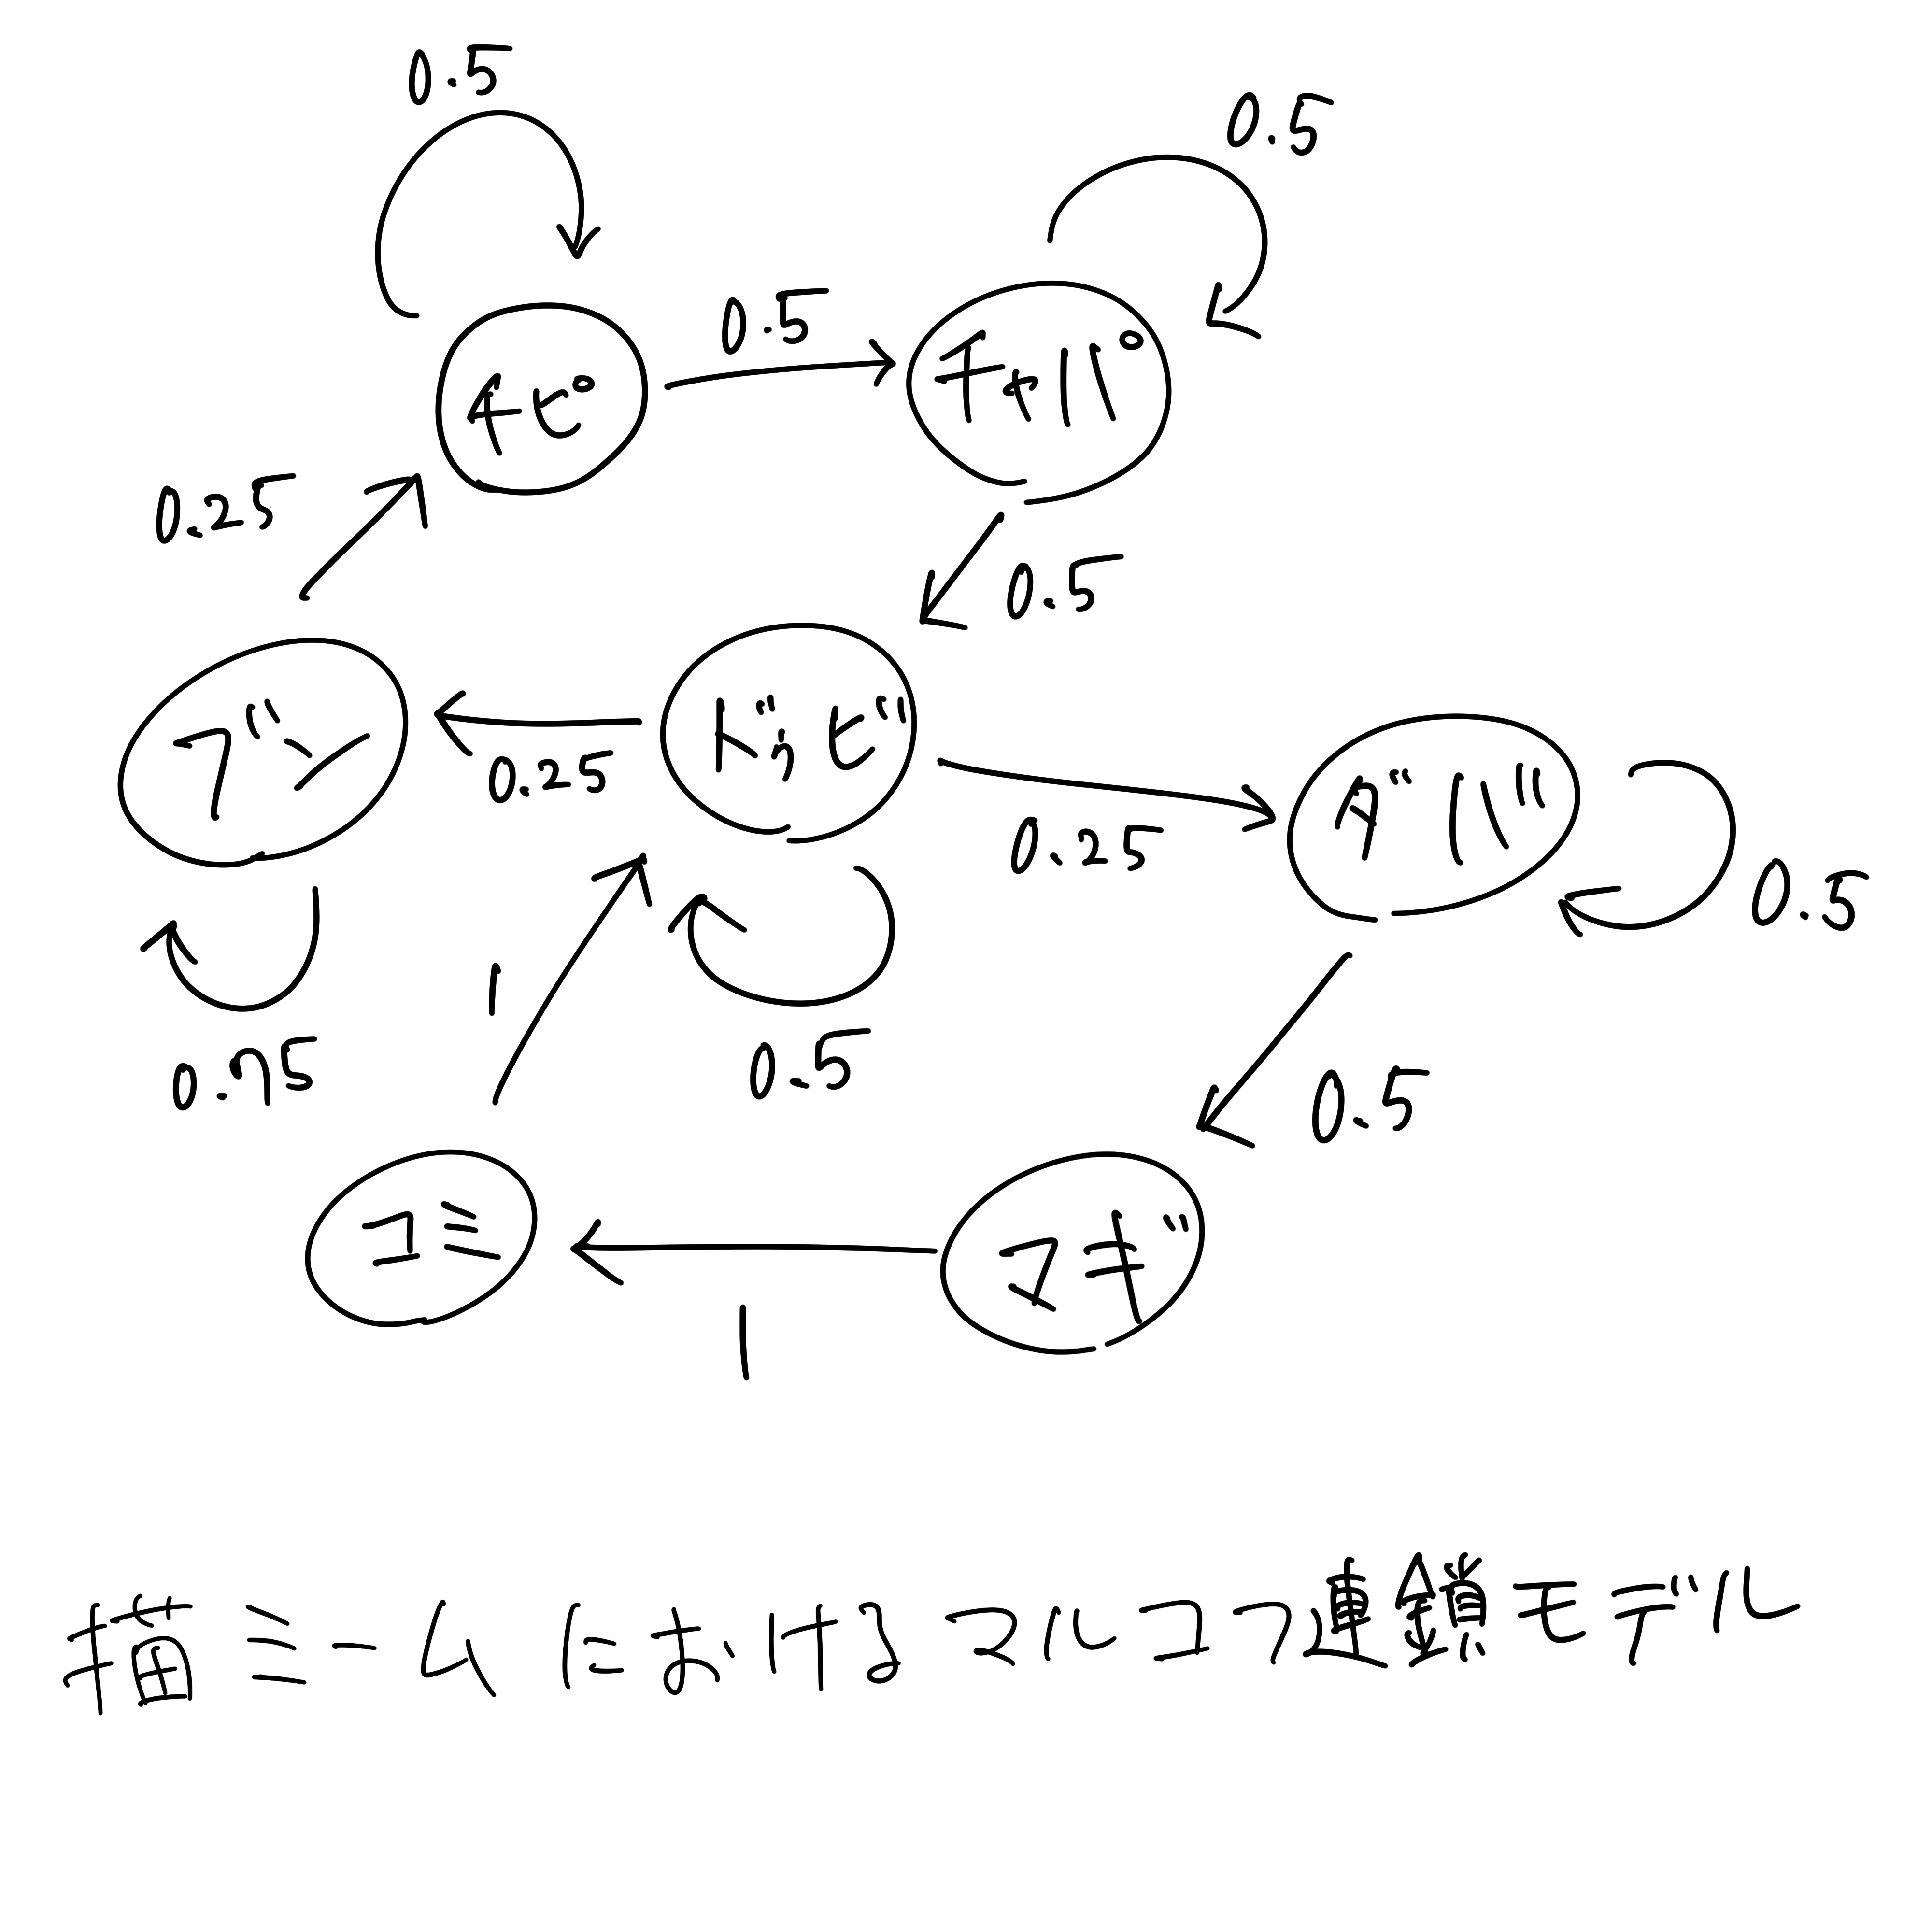 0.5
0.5
チピ
0.5
チャパ
0.25
0.5
ブン
0.25
ドゥビ
0.25
ダバ
0.5
0.75
1
0.5
0.5
コミ
1
マギ
描ミームにおけるマルコフ連鎖モデル